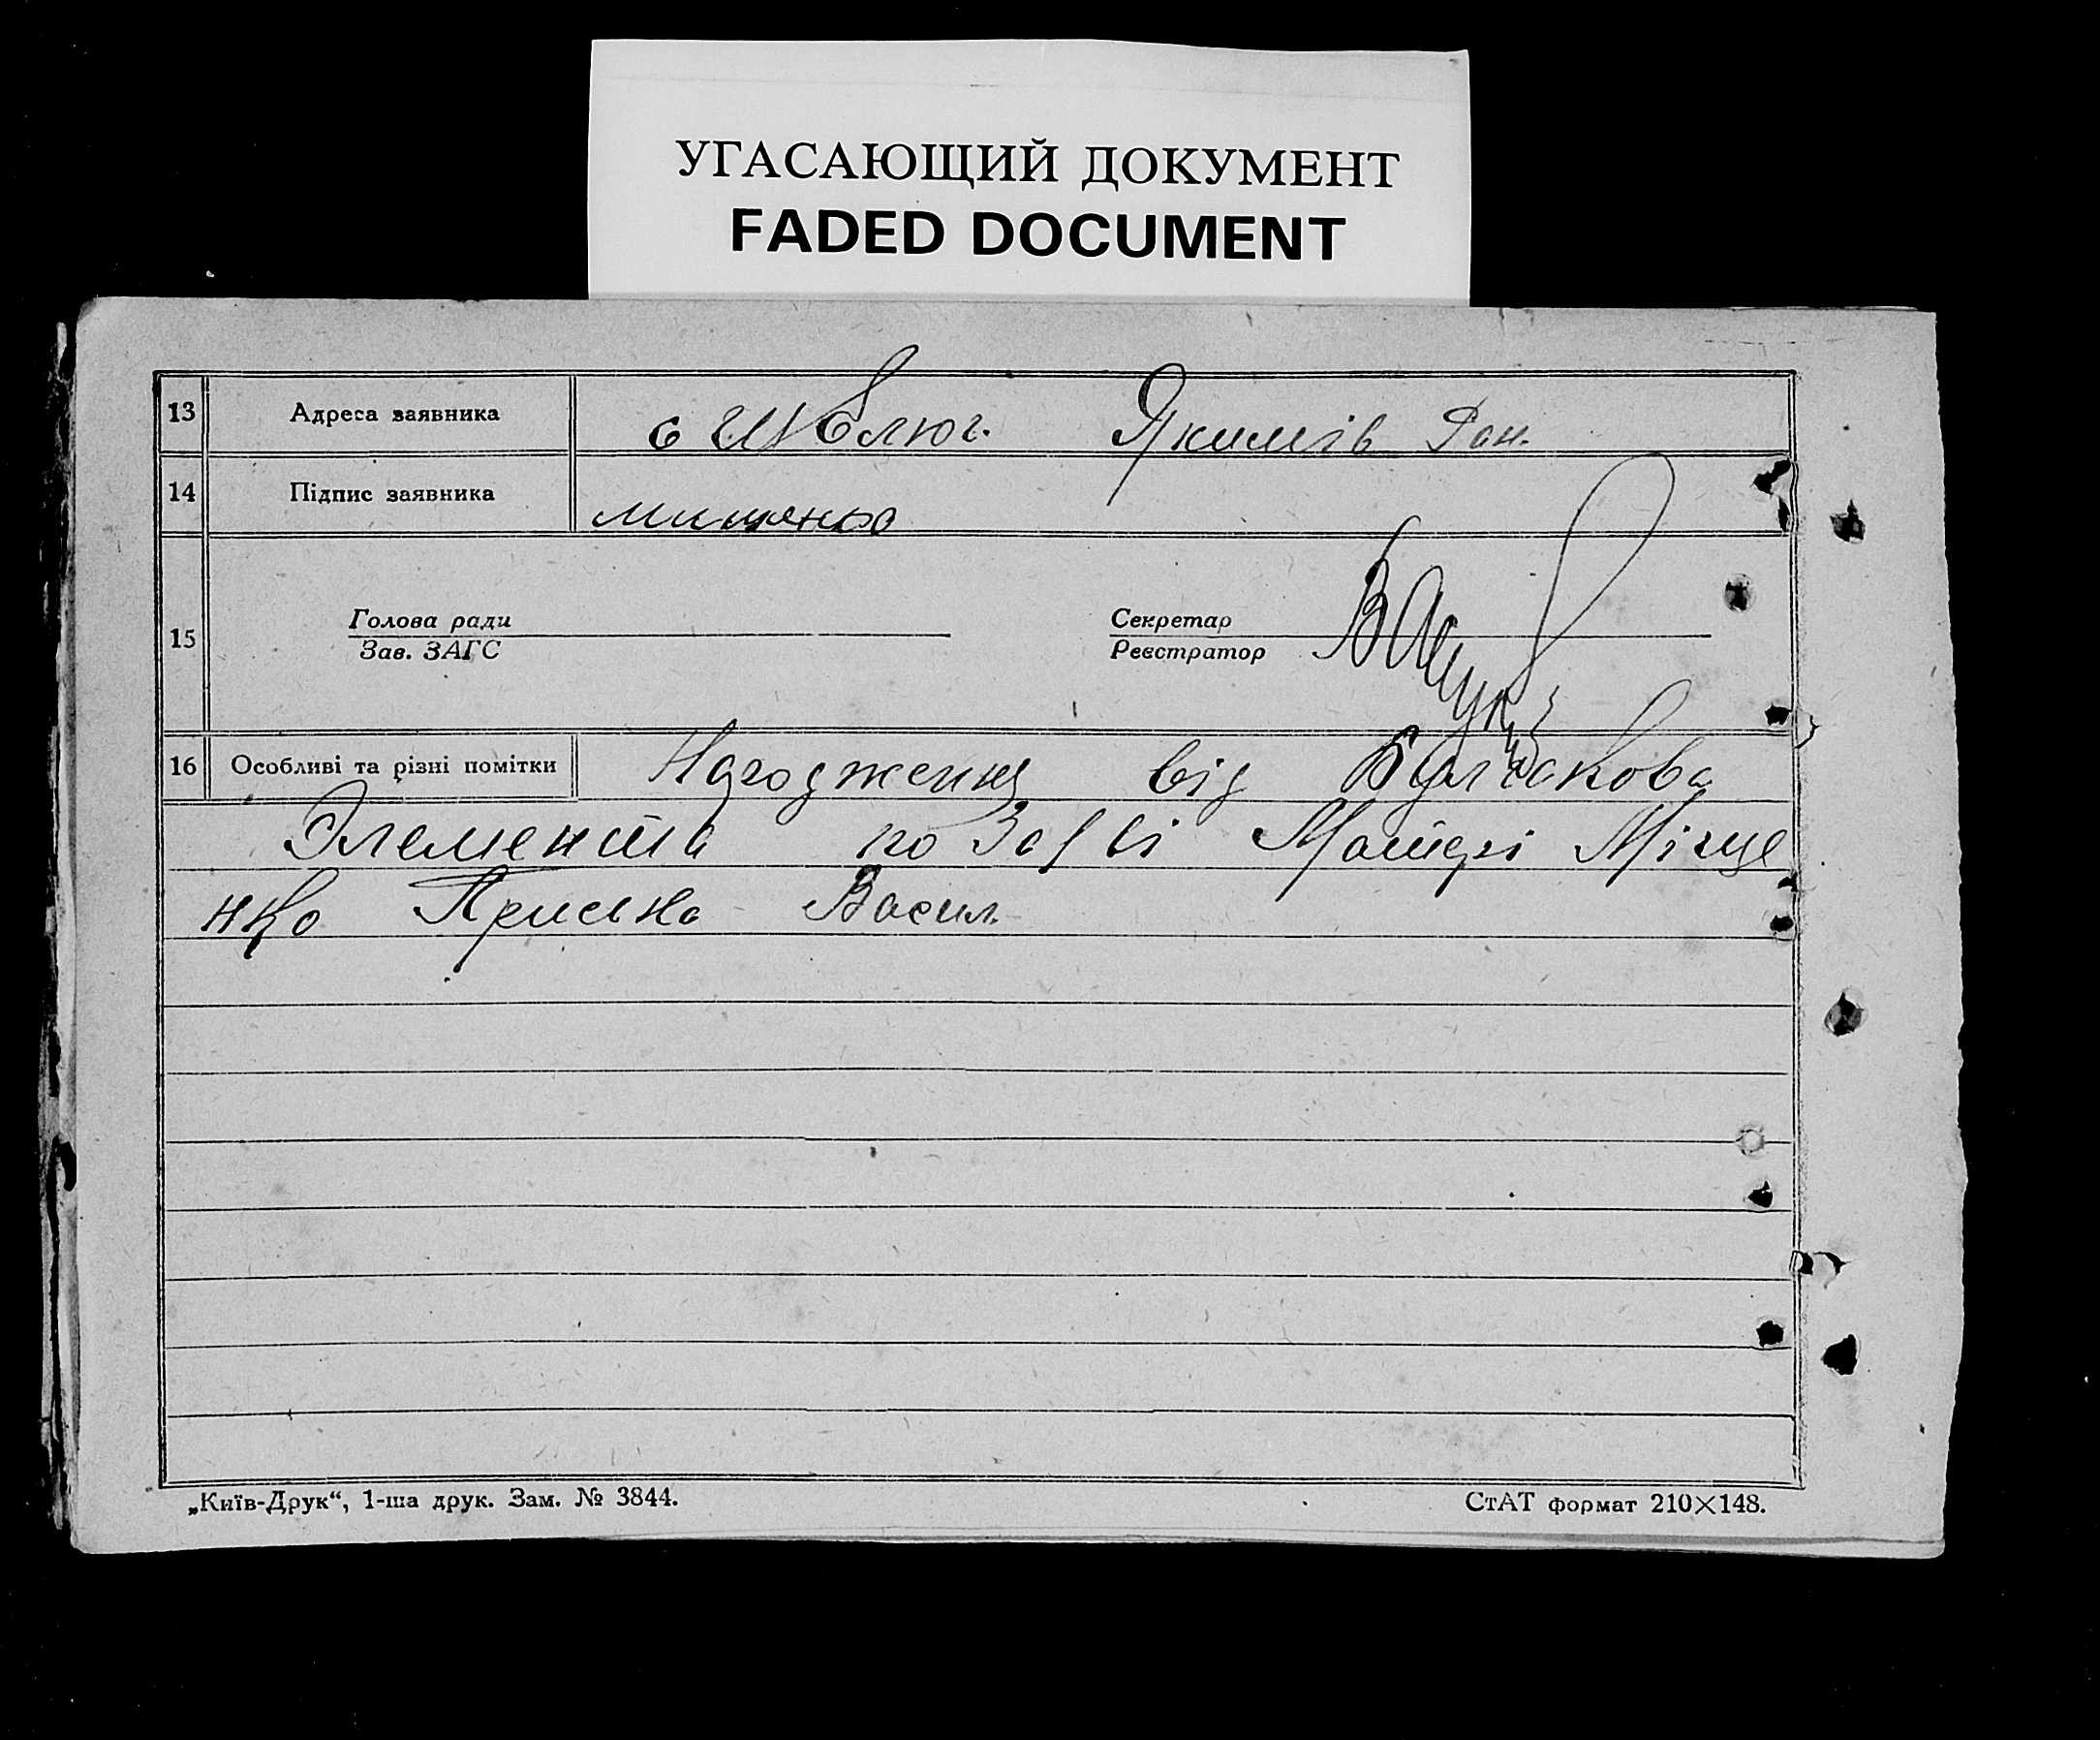 УГАСАЮЩИЙ ДОКУМЕНТ
FADED DOCUMENT
13 Адреса заявника с Якимів Рай.
14 Підпис заявника мищенко
15 Голова ради Секретар
Зав. ЗАГС Реєстратор
16 Особливі та різні помітки Народження від
Элемента по Заяві Матері Міще
нко Приська Васил
„Київ-Друк“, 1-ша друк. Зам. № 3844. СтАТ формат 210×148.